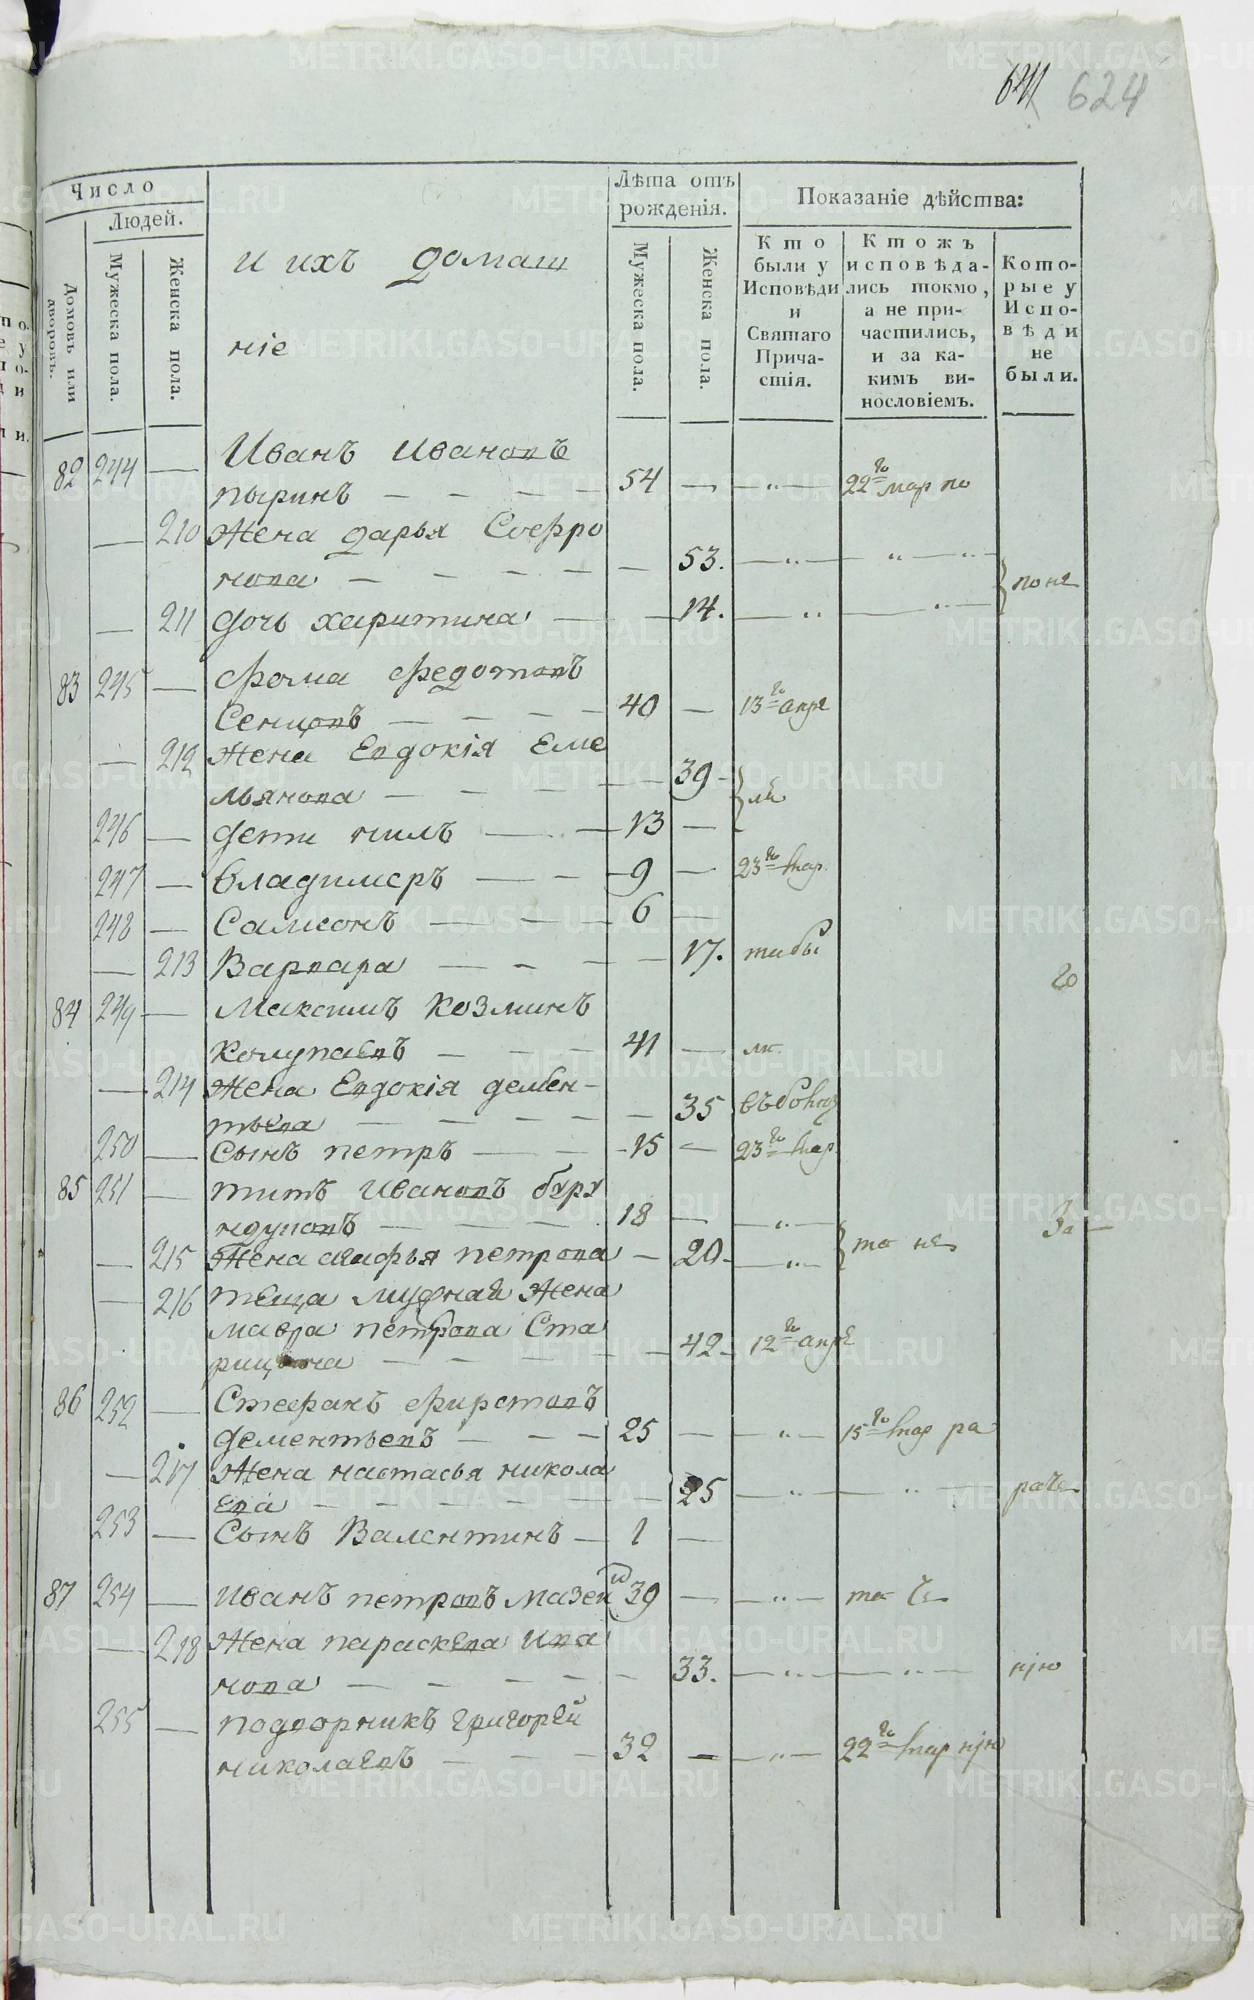 624
Число
Людей.
Домовъ или дворовъ.
Мужеска пола.
Женска пола.
и ихъ домаш
ніе
Лѣта отъ рожденія.
Мужеска пола.
Женска пола.
Показаніе дѣйства:
Кто были у Исповѣди и Святаго Прича-стія.
Ктожъ исповѣда-лись токмо, а не при-частились, и за ка-кимъ ви-нословіемъ.
Кото-рые у Испо-вѣди не были.
82 244 — Иванъ Ивановъ
пыринъ — 54 — 22го мар по
— 210 Жена дарья Софро
нова — 53.
по не
— 211 дочь харитина — 14.
83 245 — Фома Федотовъ
Сенцовъ — 40 — 13го апре
— 212 Жена Евдокія Еме
льянова — 39
ля
246 — дети нилъ — 13 —
247 — владимеръ — 9 — 23го мар
248 — Самсонъ — 6 —
— 213 Варвара — 17. та бы
го
84 249 — Максимъ Козминъ
Колупаевъ — 41 — ли
— 214 Жена Евдокія демен-
тьева — 35
250 — Сынъ петръ — 15 — 23го мар
85 251 — титъ Ивановъ буру
ндуковъ — 18 —
За
— 215 Жена агафья петрова — 20
та не
— 216 теща Жена
мавра петрова Ста
рицына — 42 12го апре
86 252 — Стефанъ фирстовъ
дементьевъ — 25 — 15го мар ра
217 Жена настасья никола
ева — 25
раче
253 — Сынъ Валентинъ — 1 —
87 254 — Иванъ петровъ мазеи 39 —
— 218 Жена параскева Ива
нова — 33.
нію
255 — подворникъ григорей
николаевъ — 32 — 22го мар нію
METRIKI.GASO-URAL.RU